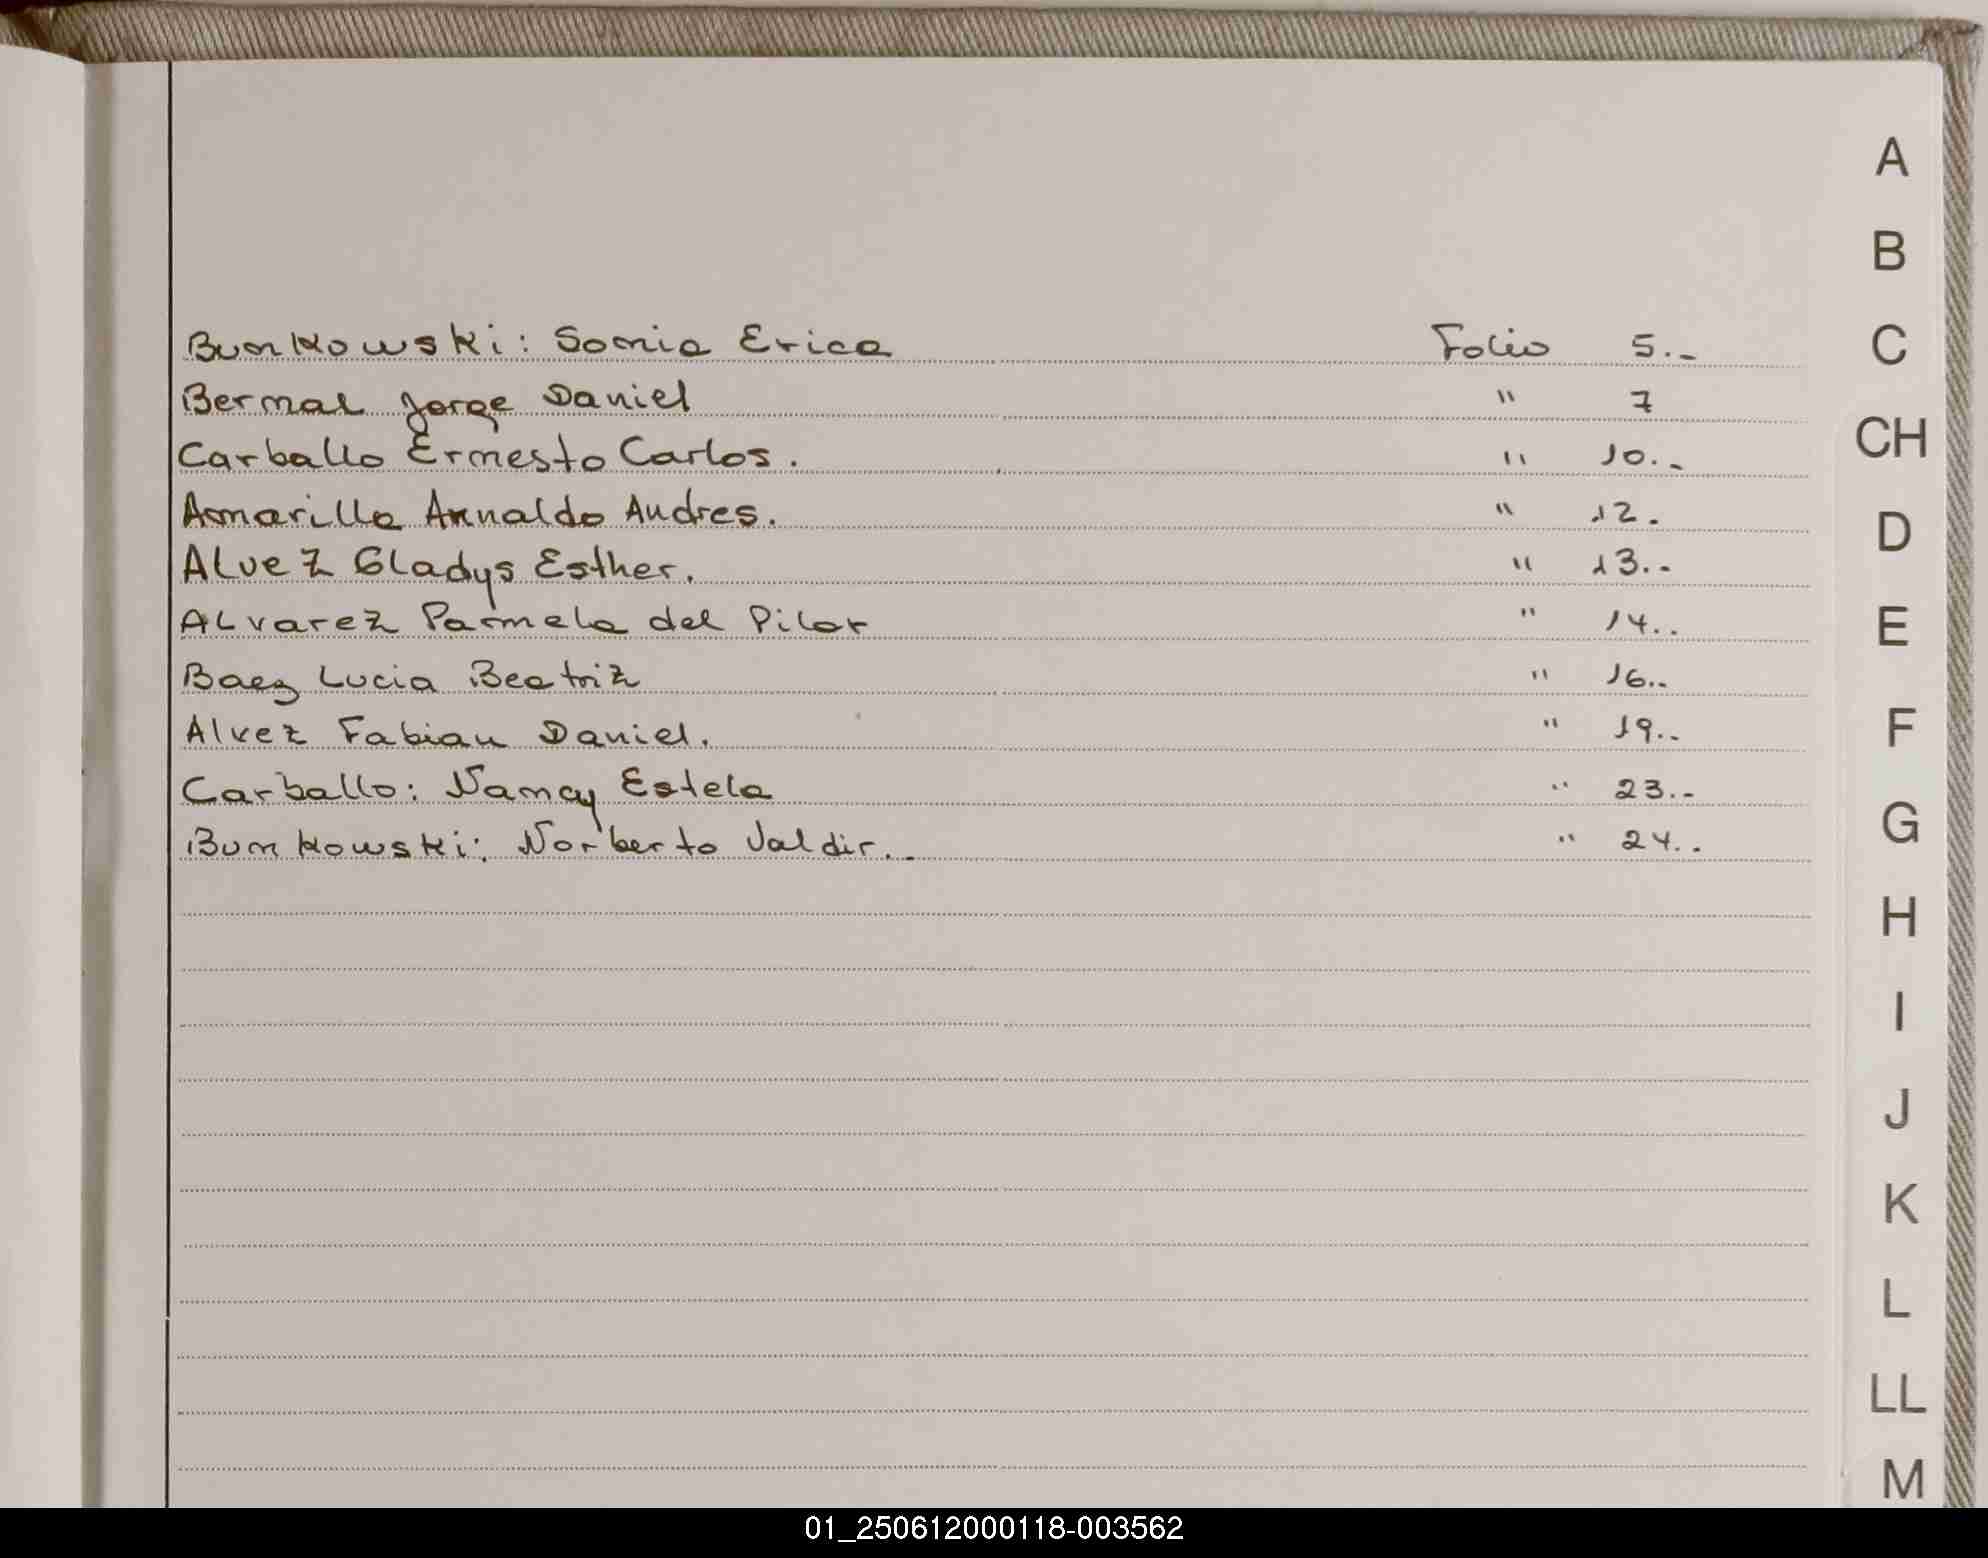 Bunkowski: Sonia Erica Folio 5.-
Bernal Jorge Daniel " 7
Carballo Ernesto Carlos. " 10.-
Amarilla Arnaldo Andres. " 12.
Alvez Gladys Esther. " 13..
Alvarez Pamela del Pilar " 14..
Baez Lucia Beatriz " 16..
Alvez Fabian Daniel. " 19..
Carballo: Nancy Estela " 23.-
Bunkowski: Norberto Valdir.. " 24..
A
B
C
CH
D
E
F
G
H
I
J
K
L
LL
M
01_250612000118-003562